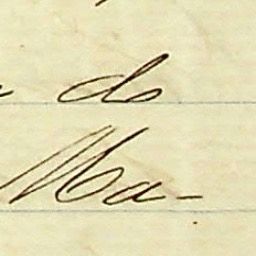 do
Ma-